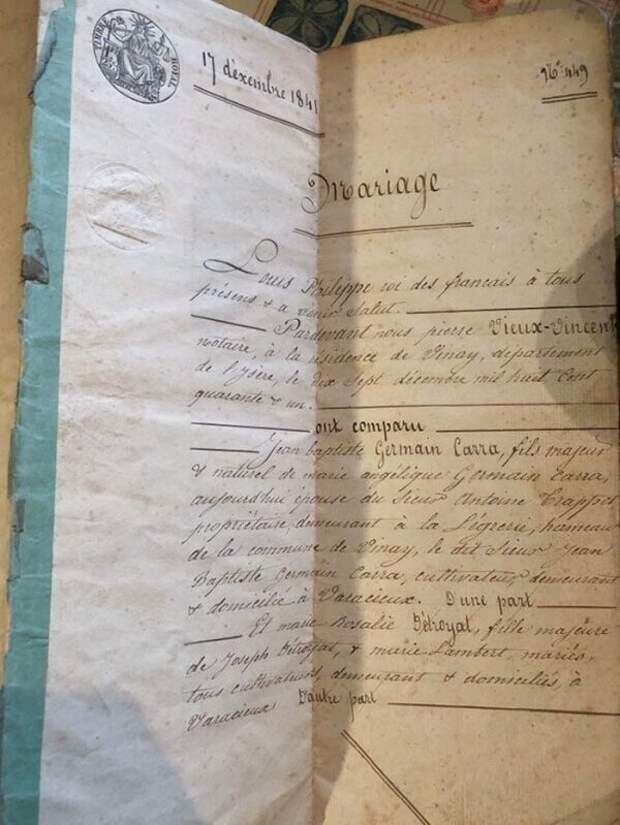 TIMBRE ROYAL
17 décembre 1841
No. 449
Mariage
Louis Philippe roi des français à tous
présens & a venir Salut.
Pardevant nous pierre Vieux-Vincent
notaire, à la résidence de Vinay, département
de l'Isère, le dix Sept décembre mil huit Cent
quarante & un.
ont comparu
Jean baptiste Germain Carra, fils majeur
& naturel de marie angélique Germain Carra,
aujourd'hui épouse du Sieur Antoine Trappet
propriétaire, demeurant à la Légrerie, hameau
de la commune de Vinay, le dit Sieur Jean
Baptiste Germain Carra, cultivateur, demeurant
& domicilié à Varacieux. D'une part
Et marie Rosalie Détroyat, fille majeure
de Joseph Détroyat, & marie Lambert, mariés,
tous cultivateurs, demeurant & domiciliés, à
Varacieux D'autre part